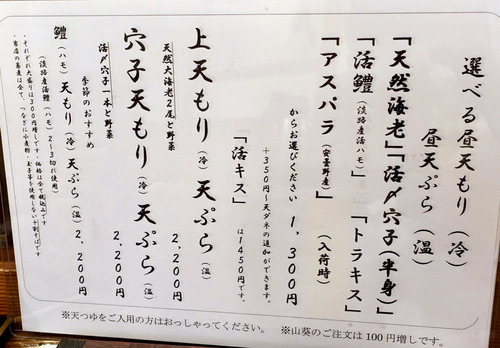 選べる昼天もり（冷）
昼天ぷら（温）
「天然海老」「活〆穴子（半身）」
「活鱧（淡路産活ハモ）」「トラキス」
「アスパラ（安曇野産）」（入荷時）
からお選びください 1,300円
＋350円〜天ダネの追加ができます。
「活キス」は1450円です。
上天もり（冷）天ぷら（温）
天然大海老2尾と野菜 2,200円
穴子天もり（冷）天ぷら（温）
活〆穴子一本と野菜 2,200円
季節のおすすめ
鱧（ハモ）天もり（冷）天ぷら（温）
（淡路産活鱧（ハモ）2〜3切れ使用） 2,200円
・それぞれ大盛りは300円増しです。価格は全て税込みです
・当店の蕎麦は全て、つなぎに小麦粉・玉子等を使用しない十割そばです
※天つゆをご入用の方はおっしゃってください。 ※山葵のご注文は100円増しです。